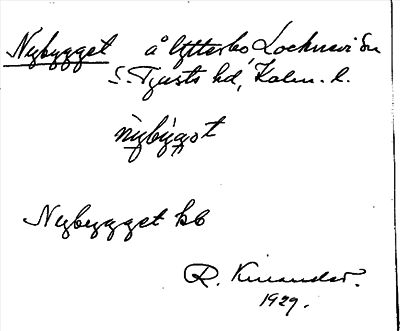 Nybygget å Ytterbo, Locknevi sn
S. Tjusts hd, Kalm. l.
nybýgot
Nybygget kb
R. Kinander.
1929.